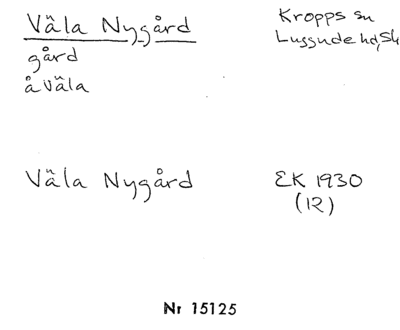 Väla Nygård
Kropps sn
Luggude hd, Sk
gård
å Väla
Väla Nygård
EK 1930
(12)
Nr 15125